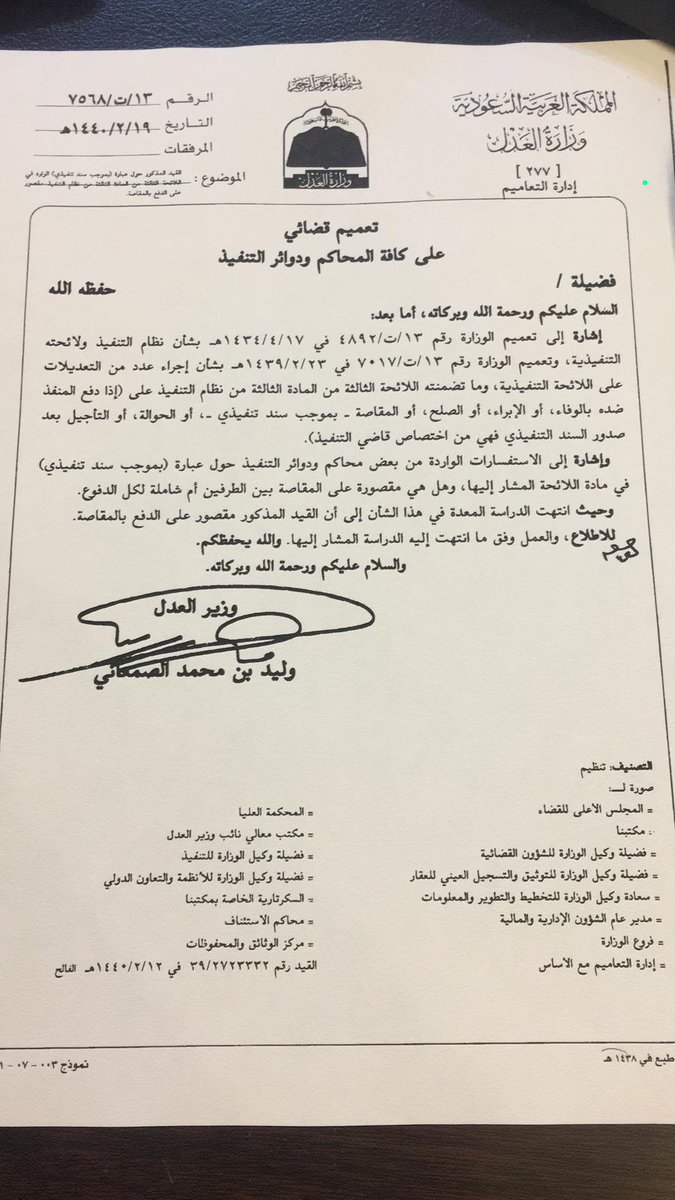 المملكة العربية السعودية
وزارة العدل
[ ٢٧٧ ]
إدارة التعاميم
بسم الله الرحمن الرحيم
وزارة العدل
الرقم ١٣/ت/٧٥٦٨
التاريخ ١٤٤٠/٢/١٩هـ
المرفقات
الموضوع : القيد المذكور حول عبارة (بموجب سند تنفيذي) الوارد في
اللائحة الثالثة من المادة الثالثة من نظام التنفيذ مقصور
على الدفع بالمقاصة.
تعميم قضائي
على كافة المحاكم ودوائر التنفيذ
فضيلة / حفظه الله
السلام عليكم ورحمة الله وبركاته، أما بعد:
إشارة إلى تعميم الوزارة رقم ١٣/ت/٤٨٩٢ في ١٤٣٤/٤/١٧هـ بشأن نظام التنفيذ ولائحته
التنفيذية، وتعميم الوزارة رقم ١٣/ت/٧٠١٧ في ١٤٣٩/٢/٢٣هـ بشأن إجراء عدد من التعديلات
على اللائحة التنفيذية، وما تضمنته اللائحة الثالثة من المادة الثالثة من نظام التنفيذ على (إذا دفع المنفذ
ضده بالوفاء، أو الإبراء، أو الصلح، أو المقاصة ـ بموجب سند تنفيذي ـ، أو الحوالة، أو التأجيل بعد
صدور السند التنفيذي فهي من اختصاص قاضي التنفيذ).
وإشارة إلى الاستفسارات الواردة من بعض محاكم ودوائر التنفيذ حول عبارة (بموجب سند تنفيذي)
في مادة اللائحة المشار إليها، وهل هي مقصورة على المقاصة بين الطرفين أم شاملة لكل الدفوع.
وحيث انتهت الدراسة المعدة في هذا الشأن إلى أن القيد المذكور مقصور على الدفع بالمقاصة.
للاطلاع، والعمل وفق ما انتهت إليه الدراسة المشار إليها. والله يحفظكم.
والسلام عليكم ورحمة الله وبركاته.
وزير العدل
وليد بن محمد الصمعاني
التصنيف: تنظيم
صورة لـــ:
= المجلس الأعلى للقضاء
: مكتبنا
= فضيلة وكيل الوزارة للشؤون القضائية
= فضيلة وكيل الوزارة للتوثيق والتسجيل العيني للعقار
= سعادة وكيل الوزارة للتخطيط والتطوير والمعلومات
= مدير عام الشؤون الإدارية والمالية
= فروع الوزارة
= إدارة التعاميم مع الأساس
= المحكمة العليا
= مكتب معالي نائب وزير العدل
= فضيلة وكيل الوزارة للتنفيذ
= فضيلة وكيل الوزارة للأنظمة والتعاون الدولي
= السكرتارية الخاصة بمكتبنا
= محاكم الاستئناف
= مركز الوثائق والمحفوظات
القيد رقم ٣٩/٢٧٢٣٣٣٢ في ١٤٤٠/٢/١٢هـ الفالح
طبع في ١٤٣٨ هـ
نموذج ٠٠٣ - ٠٧ - ١